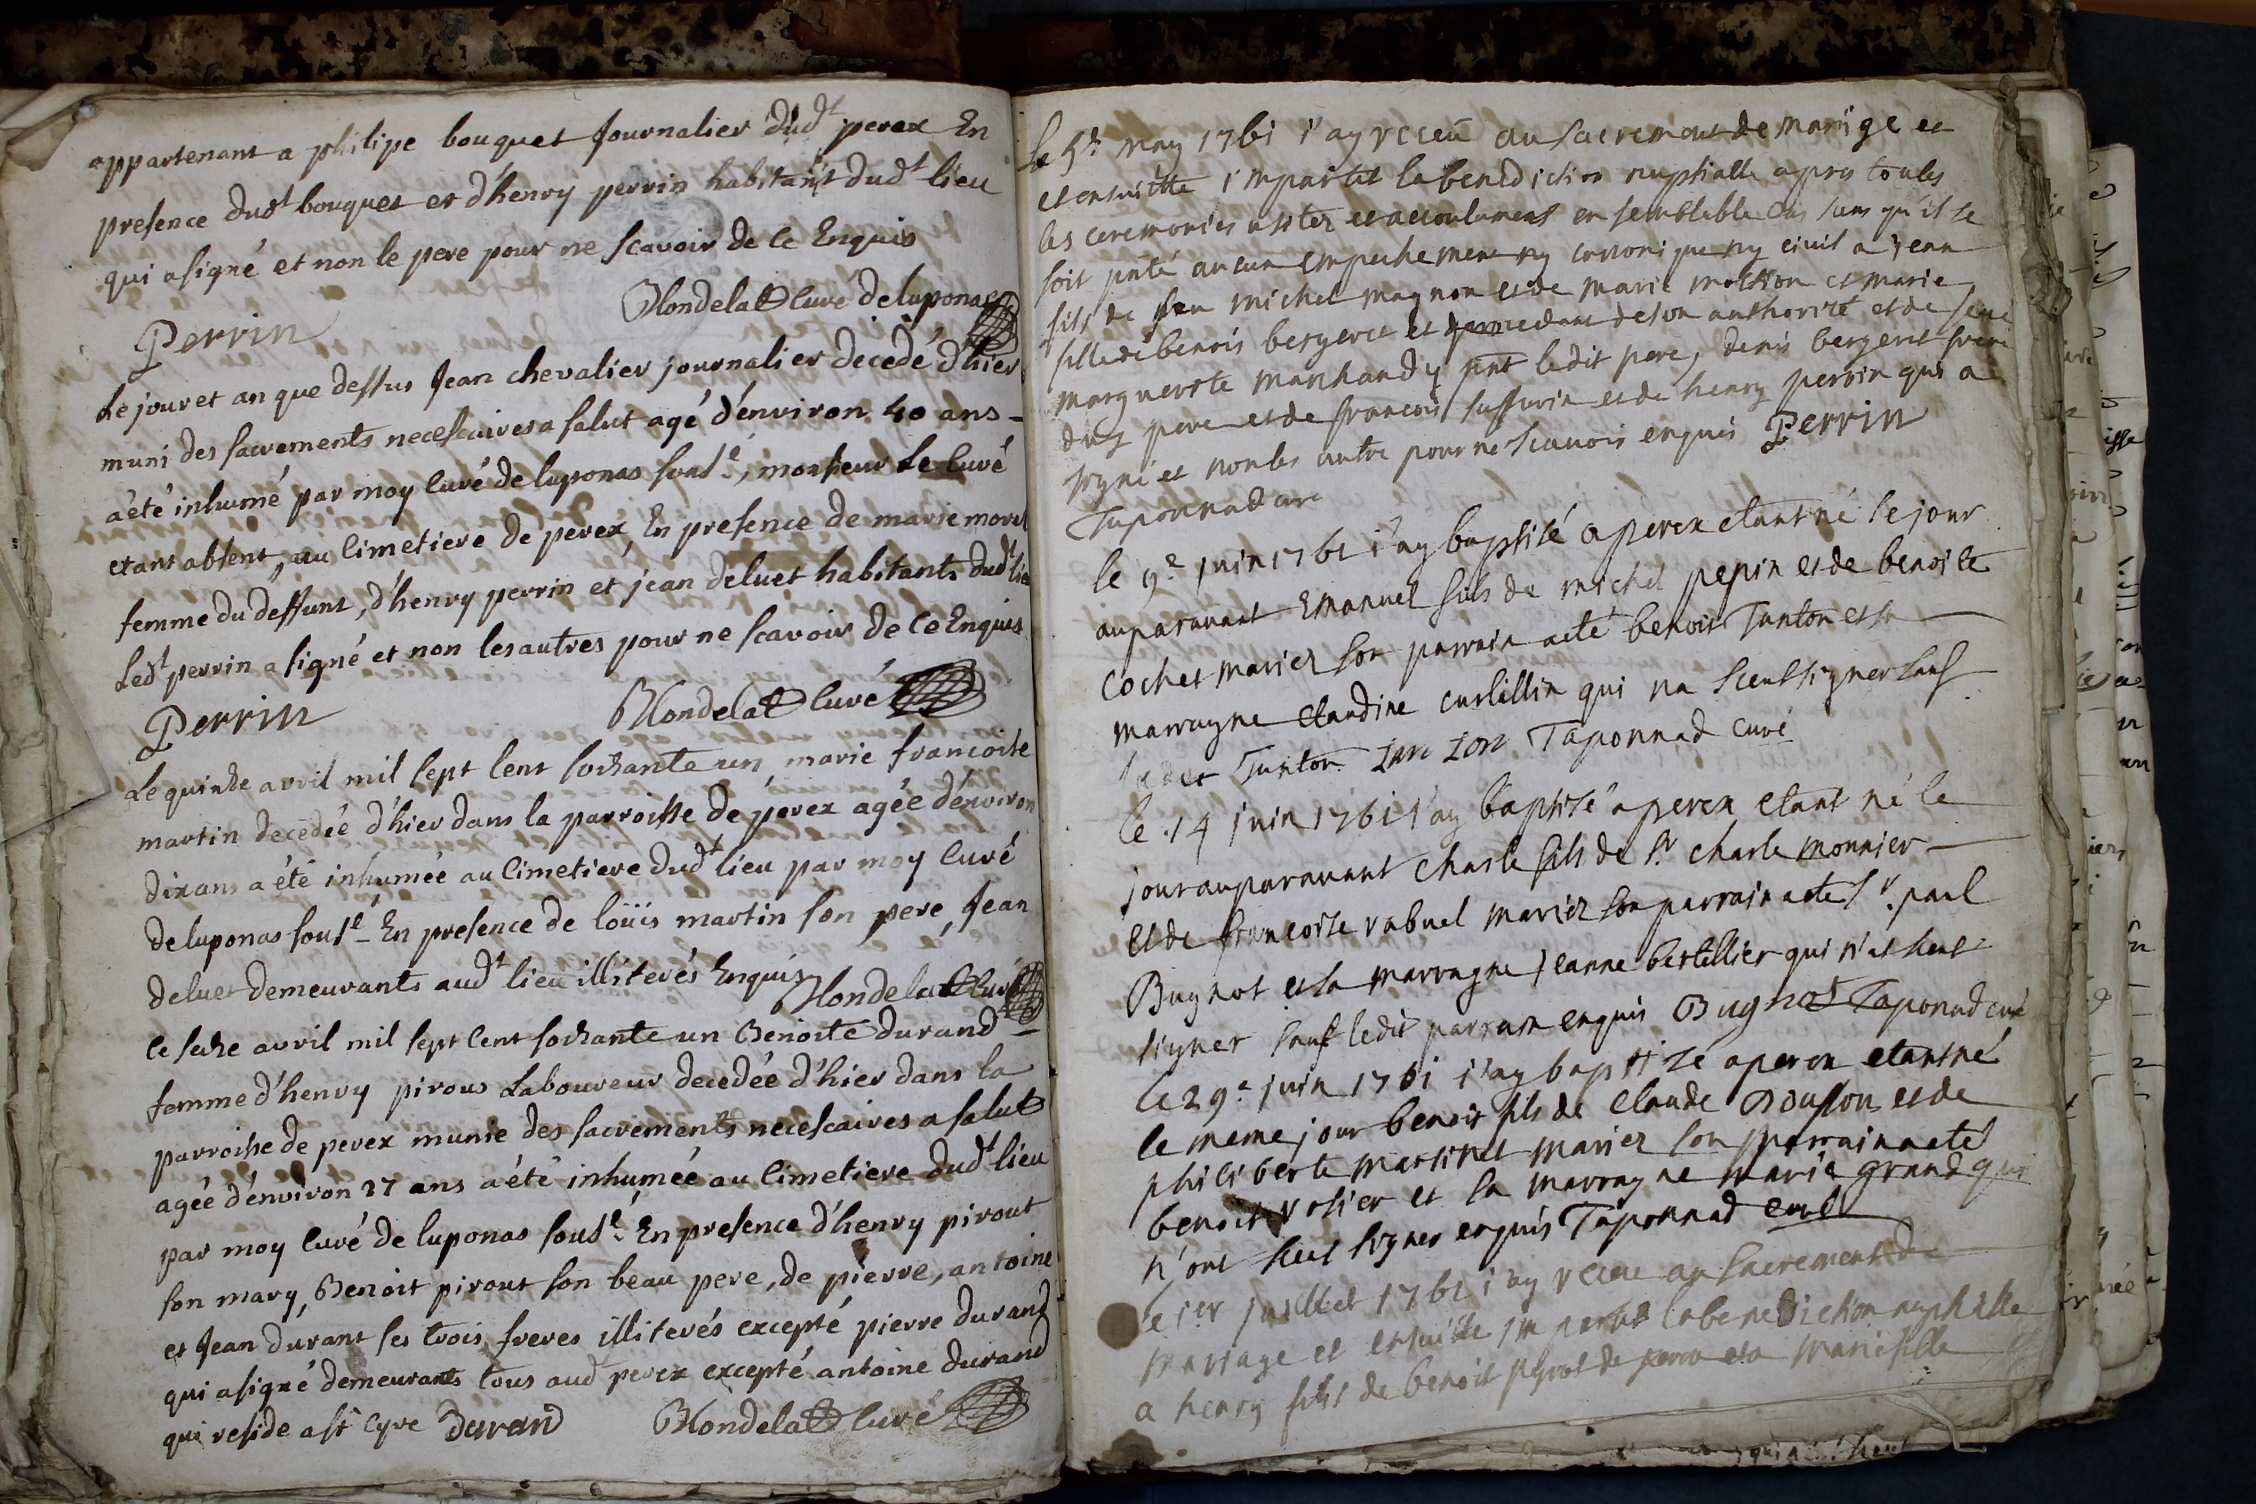 appartenant a philipe bouquet Journalier dudt perex En
presence dudt bouquet et d'henry perrin habitant dudt lieu
qui a signé et non le pere pour ne scavoir de ce Enquis
Blondelat curé de luponas
Perrin
Le jour et an que dessus Jean chevalier journalier decedé d'hier
muni des sacrements necescaires a salut agé d'environ 40 ans
a été inhumé par moy curé de luponas souse, monsieur Le curé
etant absent, au cimetiere de perex, En presence de marie morel
femme du deffunt, d'henry perrin et jean deluet habitants dudt lieu
Ledt perrin a signé et non les autres pour ne scavoir de ce Enquis
Perrin Blondelat curé
Le quinze avril mil sept cent soixante un, marie francoise
martin decedée d'hier dans la parroisse de perex agée d'environ
dix ans a été inhumée au cimetiere dudt lieu par moy curé
de luponas souse En presence de loüis martin son pere, Jean
deluet demeurants audt lieu illiterés Enquis Blondelat curé
le seize avril mil sept cent soixante un Benoite durand
femme d'henry pirous Laboureur decedée d'hier dans la
parroisse de perex munie des sacrements necescaires a salut
agée d'environ 27 ans a été inhumée au cimetiere dudt lieu
par moy curé de luponas souse En presence d'henry pirout
son mary, Benoit pirout son beau pere, de pierre, antoine
et Jean durant ses trois freres illiterés excepté pierre durand
qui a signé demeurants tous aud perex excepté antoine durand
qui reside a st cyre Durand Blondelat curé
Le may 1761 j'ay receu au sacrement de marige et
et ensuitte impartit la benediction nuptialle apres toutes
les ceremonies usitez et accoutumeas en semblable cas sans qu'il se
soit pnté aucun empechement ny canonique ny civil a jean
fils de feu michel magnon et de marie et marie
fille de benoit bergeret et procedant de son authorité et de
marguerite marchandy pnt ledit pere, denis bergeret frere
pere et de francois suffurin et de henry perrin qui a
signé et non les autre pour ne scauoir enquis Perrin
Taponnad curé
le 9e juin 1761 j'ay baptisé a perex etant né le jour
auparauant Emanuel fils de michel pepin et de benoite
cochet mariez son parrain a eté benoit Tunton et sa
marrayne claudine curtillin qui na sceut signer sauf
ledet Tunton Taponnad curé
le 14 juin 1761 j'ay baptisé a perex etant né le
jour auparauant charle fils de sr charle monnier
et de francoise rabuel mariez son parrain a ete sr paul
Bugnot et sa marrayne jeanne bertellier qui n'at sceut
signer sauf ledit parrain enquis Bugnot Taponnad curé
le 29e juin 1761 j'ay baptizé a perex etant né
le meme jour benoit fils de claude et de
philiberte martinet mariez son parrain a eté
benoit rosier et sa marrayne marie grand qui
n'ont sceut signer enquis Taponnad curé
le 1er juillet 1761 j'ay receu au sacrement de
mariage et ensuitte impartit la benediction nuptialle
a henry fils de benoit pyrot de perex et a marie fille